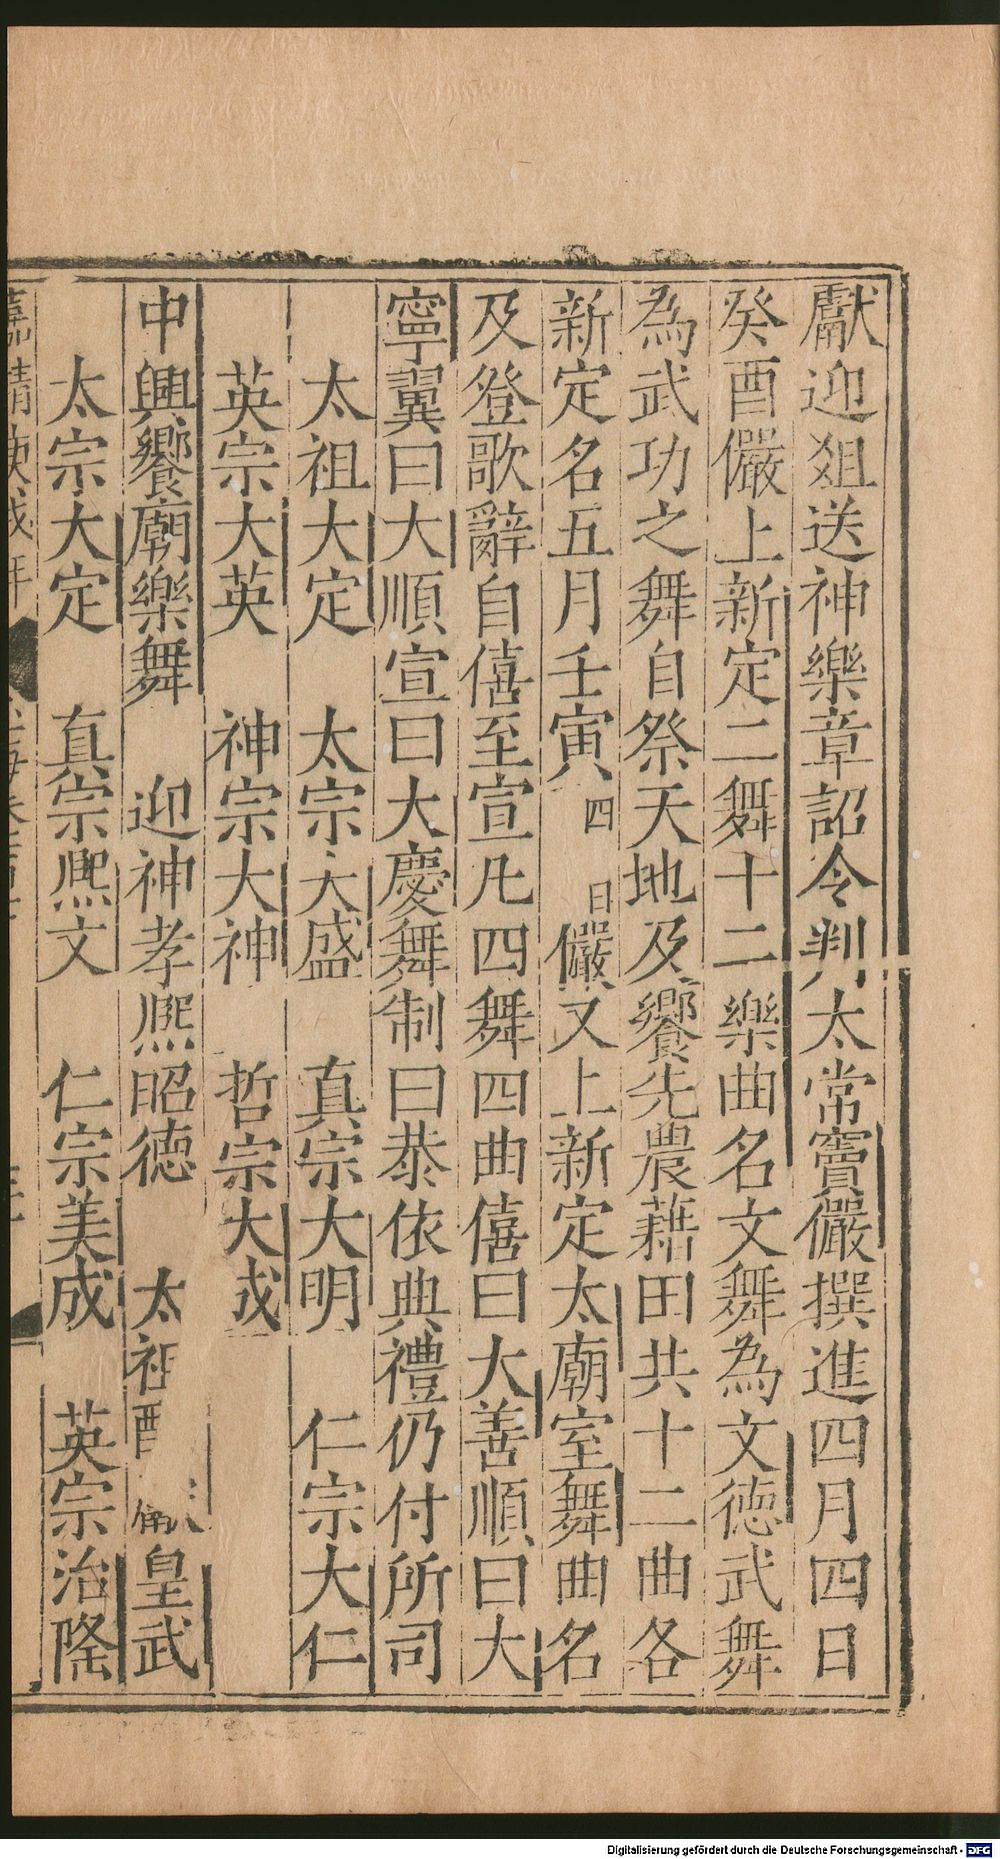 獻迎爼送神樂章詔令判太常竇儼撰進四月四日
癸酉儼上新定二舞十二樂曲名文舞為文德武舞
為武功之舞自祭天地及饗先農藉田共十二曲各
新定名五月壬寅四日儼又上新定太廟室舞曲名
及登歌辭自僖至宣凡四舞四曲僖曰大善順曰大
寧翼曰大順宣曰大慶舞制曰恭依典禮仍付所司
太祖大定　太宗大盛　真宗大明　仁宗大仁
英宗大英　神宗大神　哲宗大成
中興饗廟樂舞　迎神孝熙昭德　太祖酌　皇武
太宗大定　真宗熙文　仁宗美成　英宗治隆
嘉靖庚戌年
Digitalisierung gefördert durch die Deutsche Forschungsgemeinschaft - DFG